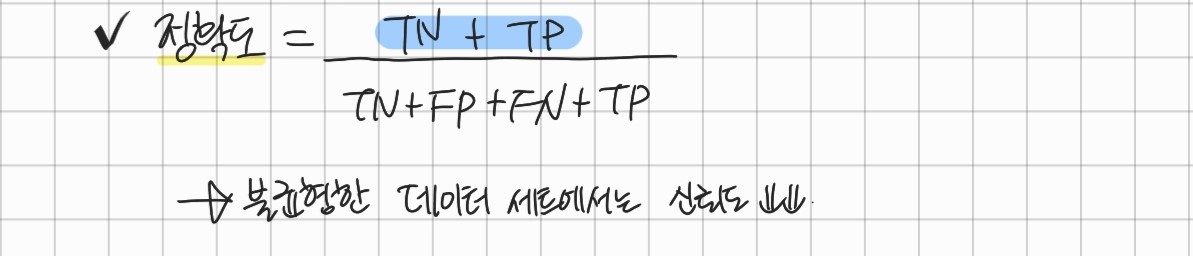 ✓ 정확도 = TN + TP
TN+FP+FN+TP
→ 불균형한 데이터 세트에서는 신뢰도 ↓↓.